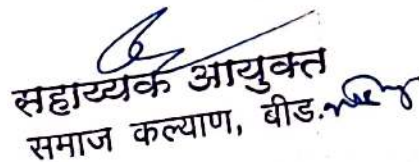 सहाय्यक आयुक्त
समाज कल्याण, बीड.